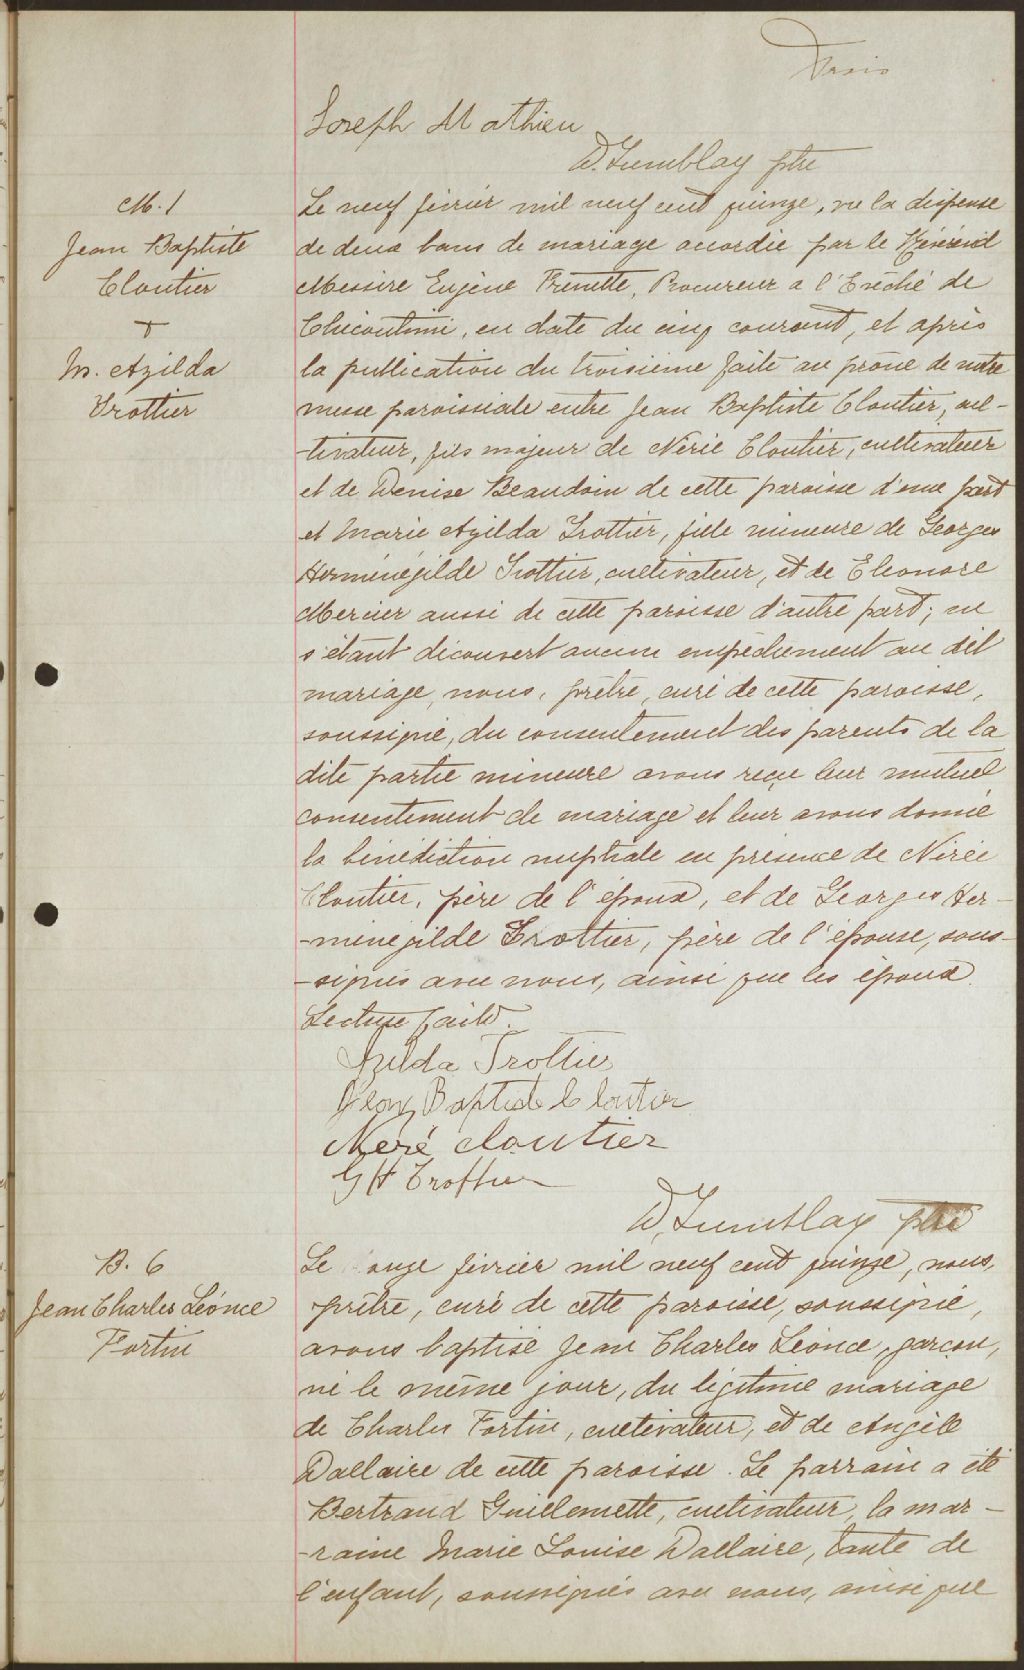 Trois
Joseph Mathieu
W. Tremblay ptre
M. 1
Jean Baptiste
Cloutier
+
M. Azilda
Trottier
Le neuf février mil neuf cent quinze, vu la dispense
de deux bans de mariage accordée par le Révérend
Messire Eugène Frenette, Procureur a l'Evêché de
Chicoutimi, en date du cinq courant, et après
la publication du troisième faite au prône de notre
messe paroissiale entre Jean Baptiste Cloutier, cul-
-tivateur, fils majeur de Nérée Cloutier, cultivateur
et de Denise Beaudoin de cette paroisse d'une part
et Marie Azilda Trottier, fille mineure de Georges
Herménégilde Trottier, cultivateur, et de Eléonore
Mercier aussi de cette paroisse d'autre part; ne
s'étant découvert aucun empêchement au dit
mariage, nous, prêtre, curé de cette paroisse,
soussigné, du consentement des parents de la
dite partie mineure avons reçu leur mutuel
consentement de mariage et leur avons donné
la bénédiction nuptiale en présence de Nérée
Cloutier, père de l'époux, et de Georges Her-
-ménégilde Trottier, père de l'épouse, sous-
-signés avec nous, ainsi que les époux.
Lecture faite.
Azilda Trottier
Jean Baptiste Cloutier
Neré Cloutier
G H Trottier
W. Tremblay ptre
B. 6
Jean Charles Léonce
Fortin
Le onze février mil neuf cent quinze, nous,
prêtre, curé de cette paroisse, soussigné,
avons baptisé Jean Charles Léonce, garçon,
né le même jour, du légitime mariage
de Charles Fortin, cultivateur, et de Angèle
Dallaire de cette paroisse. Le parrain a été
Bertrand Guillemette, cultivateur, la mar-
-raine Marie Louise Dallaire, tante de
l'enfant, soussignés avec nous, ainsi que